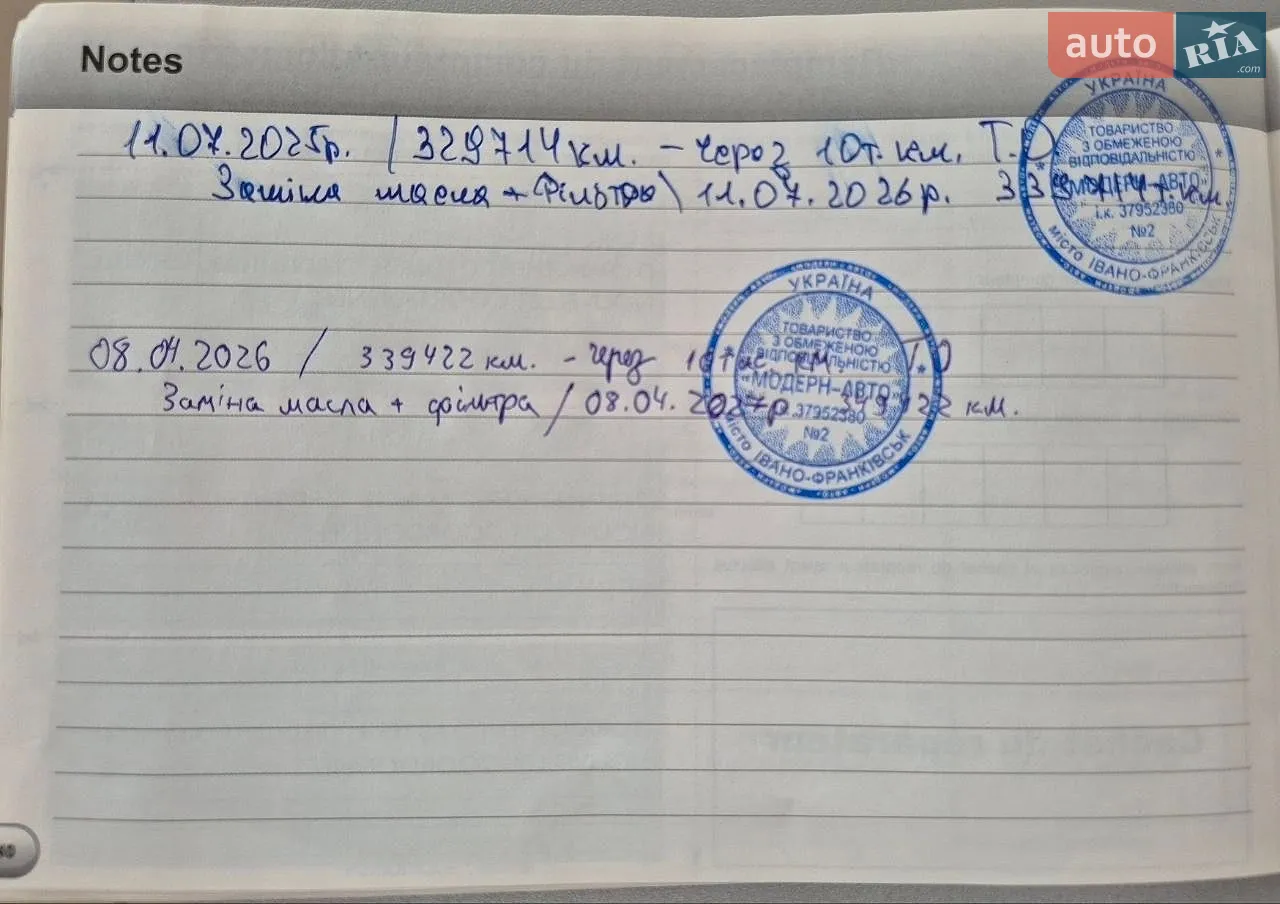 auto RIA .com
Notes
11.07.2025р. / 329714 км. - Через 10 т. км. Т.О
Заміна масла + Фільтра \ 11.07.2026 р. 339714 т. км.
УКРАЇНА
ТОВАРИСТВО
З ОБМЕЖЕНОЮ
ВІДПОВІДАЛЬНІСТЮ
"МОДЕРН-АВТО"
і.к. 37952380
№2
місто ІВАНО-ФРАНКІВСЬК
08.04.2026 / 339422 км. - Через 10 тис. км. Т.О
Заміна масла + фільтра / 08.04.2027р 349422 км.
УКРАЇНА
ТОВАРИСТВО
З ОБМЕЖЕНОЮ
ВІДПОВІДАЛЬНІСТЮ
"МОДЕРН-АВТО"
37952380
№2
місто ІВАНО-ФРАНКІВСЬК